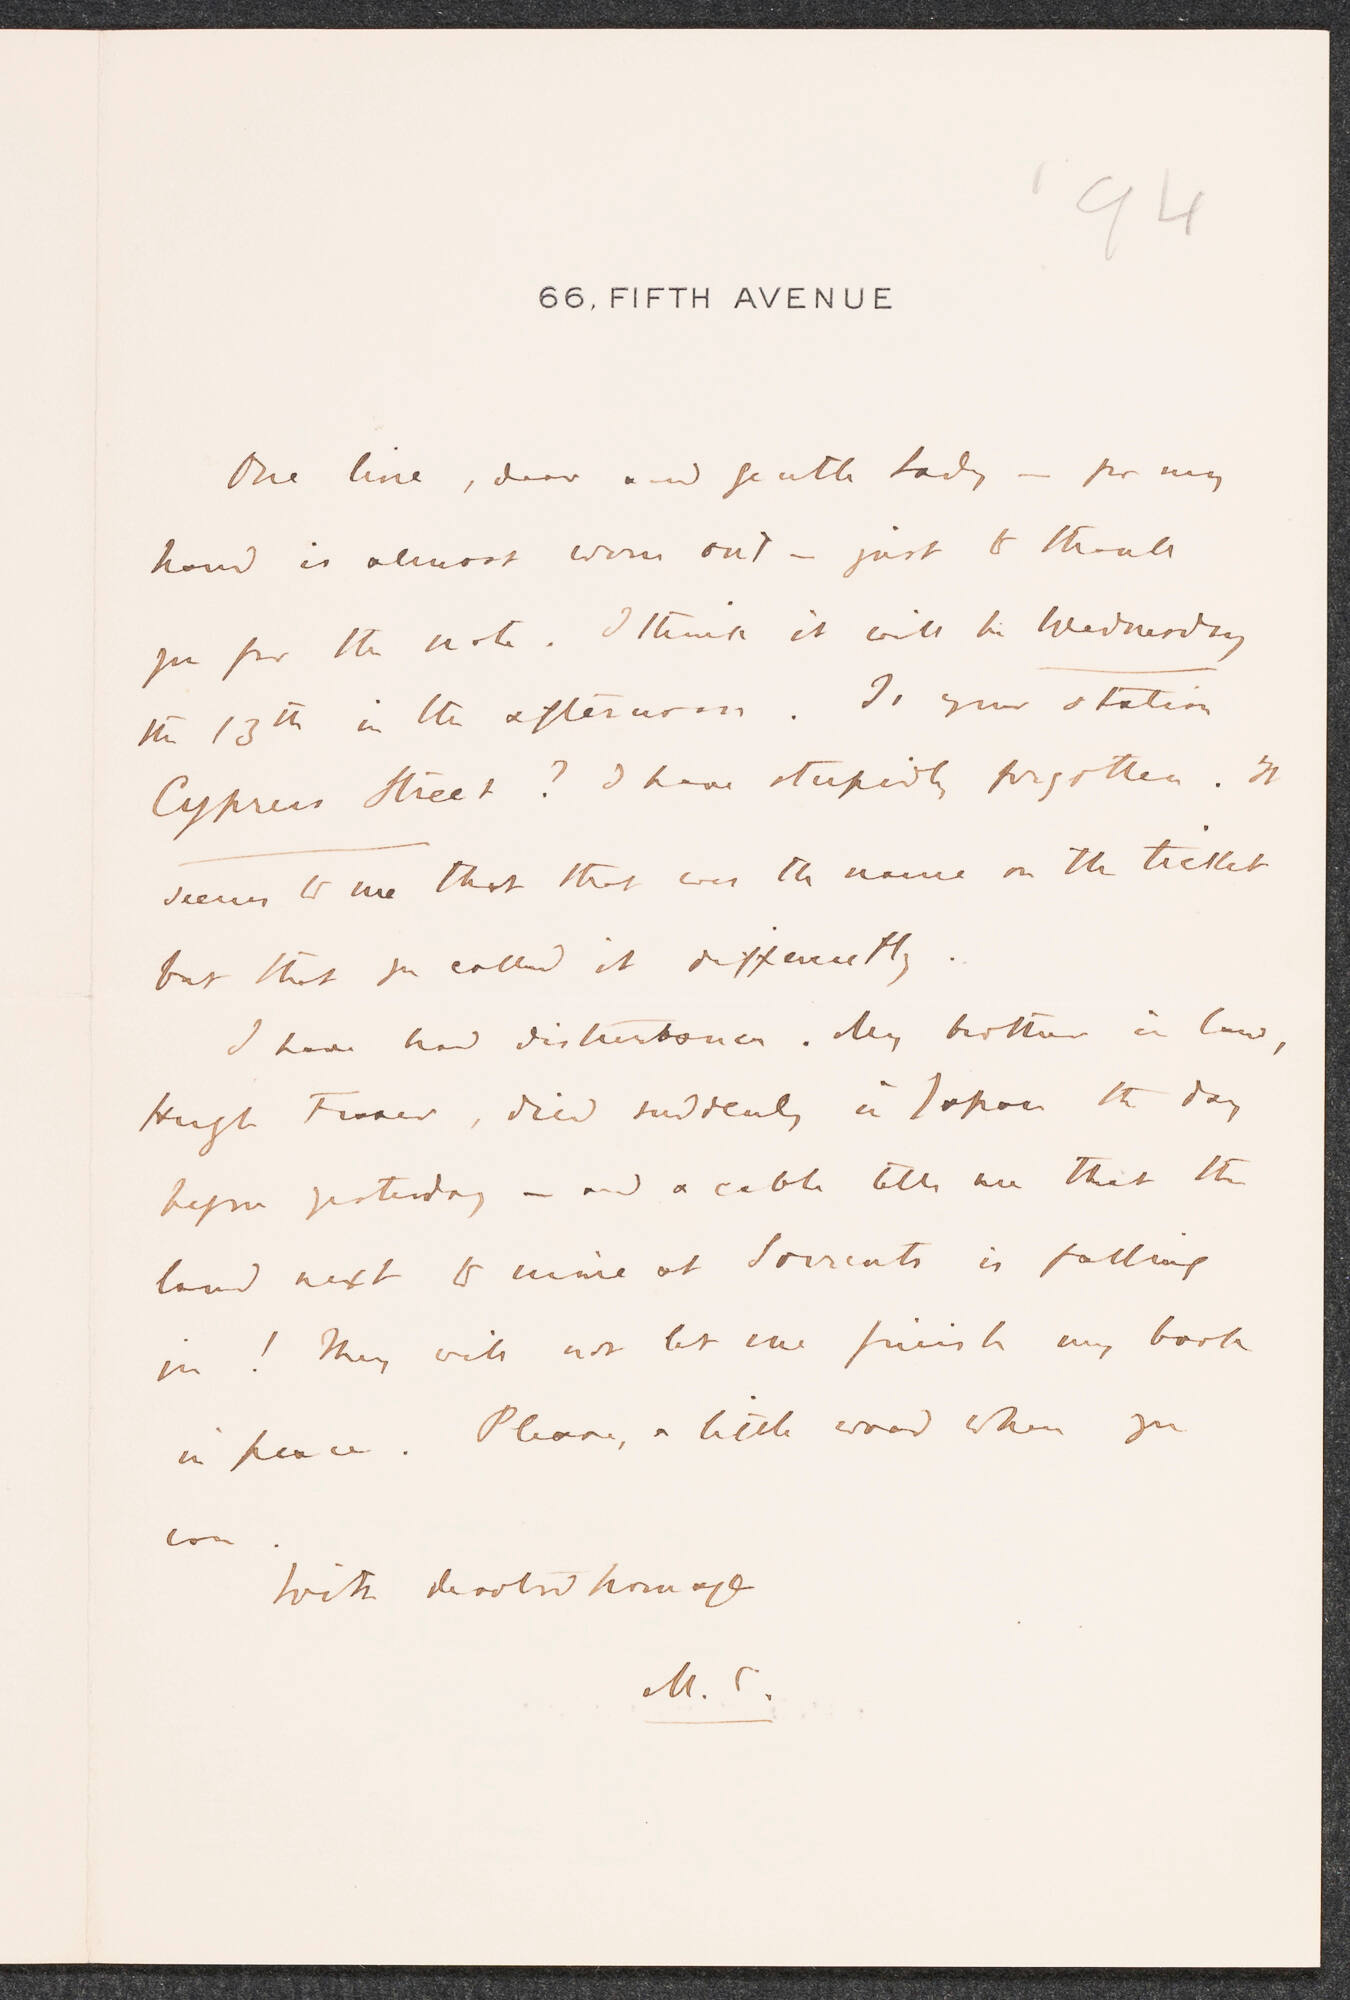 '94
66, FIFTH AVENUE
One line, dear and gentle Lady — for my
hand is almost worn out — just to thank
you for the note. I think it will be Wednesday
the 13th in the afternoon. Is your station
Cypress Street? I have stupidly forgotten. It
seems to me that that was the name on the ticket
but that you called it differently.
I have had disturbances. My brother in law,
Hugh Fraser, died suddenly in Japan the day
before yesterday — and a cable tells me that the
land next to mine at Sorrento is falling
in! They will not let me finish my book
in peace. Please, a little word when you
can.
With devoted homage
M. C.